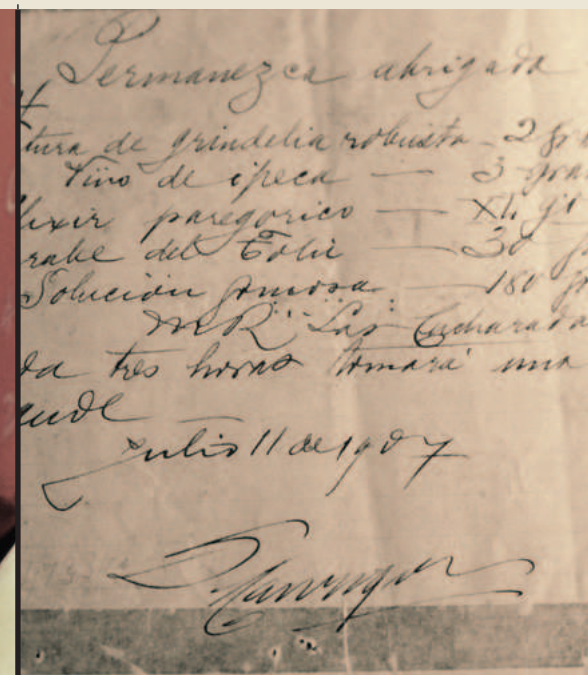 Permanezca abrigada
tura de grindelia robusta - 2 gra
Vino de ipeca — 3 gra
lixir paregorico — XL g
rabe del Tolú — 30 g
Solución gomosa — 180 g
M R. Las Cucharada
da tres horas tomará una
ande
Julio 11 de 1907